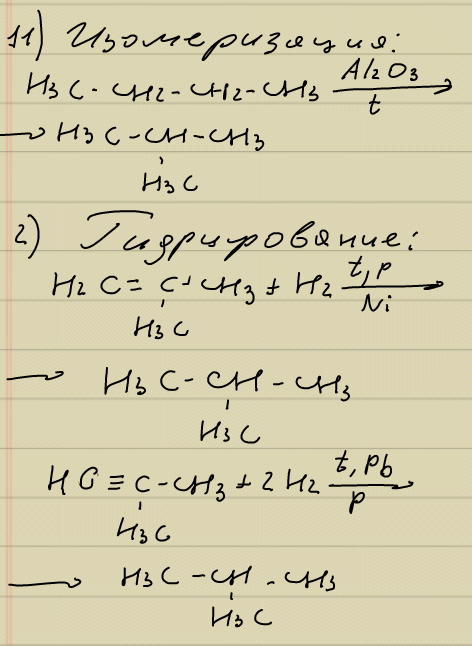 11) Изомеризация:
H3C-CH2-CH2-CH3 Al2O3 t →
→ H3C-CH-CH3
H3C
2) Гидрирование:
H2C=C-CH3 + H2 t,p Ni →
H3C
→ H3C-CH-CH3
H3C
HC≡C-CH3 + 2H2 t, Pb p →
H3C
→ H3C-CH-CH3
H3C